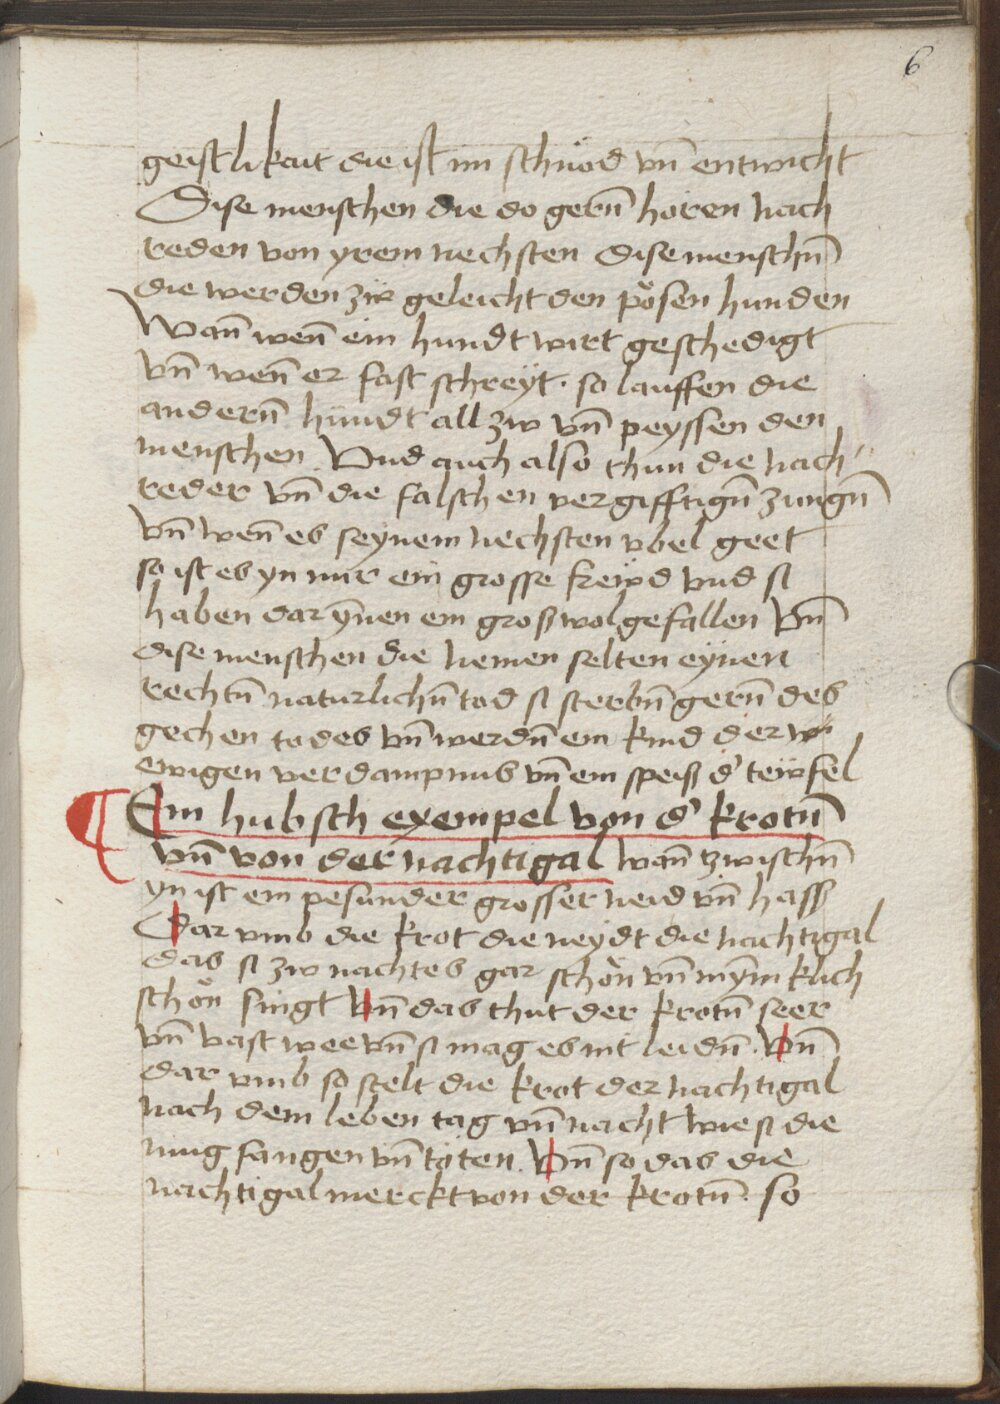 6
geistlikait die ist im schnöd vn̄ entwicht
Dise menschen die do gern̄ horen nach
reden von yrem nechsten dise menschn̄
die werden zw geleicht den pösen hunden
Wan̄ wen̄ ein hundt wirt geschedigt
vn̄ wen̄ er fast schreÿt · so lauffen die
andern̄ hundt all zw vn̄ peyssen den
menschen Vnd auch also thun die nach
reder vn̄ die falschen vergifftign̄ zungn̄
Vn̄ wen̄ es seynem nechsten vbel geet
so ist es yn nur ein grosse frewd vnd si
haben dar yn̄en ein groß wolgefallen Vn̄
dise menschen die nemen selten eynen
rechtn̄ naturlichn̄ tod si sterbn̄ gern̄ des
gechen todes vn̄ werdn̄ ein kind der
ewigen verdampnus vn̄ ein speiß d' tewfel
¶ Ein hubsch exempel von d' krotn̄
vn̄ von der nachtigal wan̄ zwischn̄
yn ist ein pesunder grosser neid vn̄ hass
Dar vmb die krot die neydt die nachtigal
das si zw nachtes gar schön vn̄ myn̄iklich
schön singt Vn̄ das thut der krotn̄ seer
vn̄ vast wee vn̄ si mag es nit leidn̄ . Vn̄
dar vmb so stelt die krot der nachtigal
nach dem leben tag vn̄ nacht wie si die
mug fangen vn̄ töten . Vn̄ so das die
nachtigal merckt von der krotn̄ · so